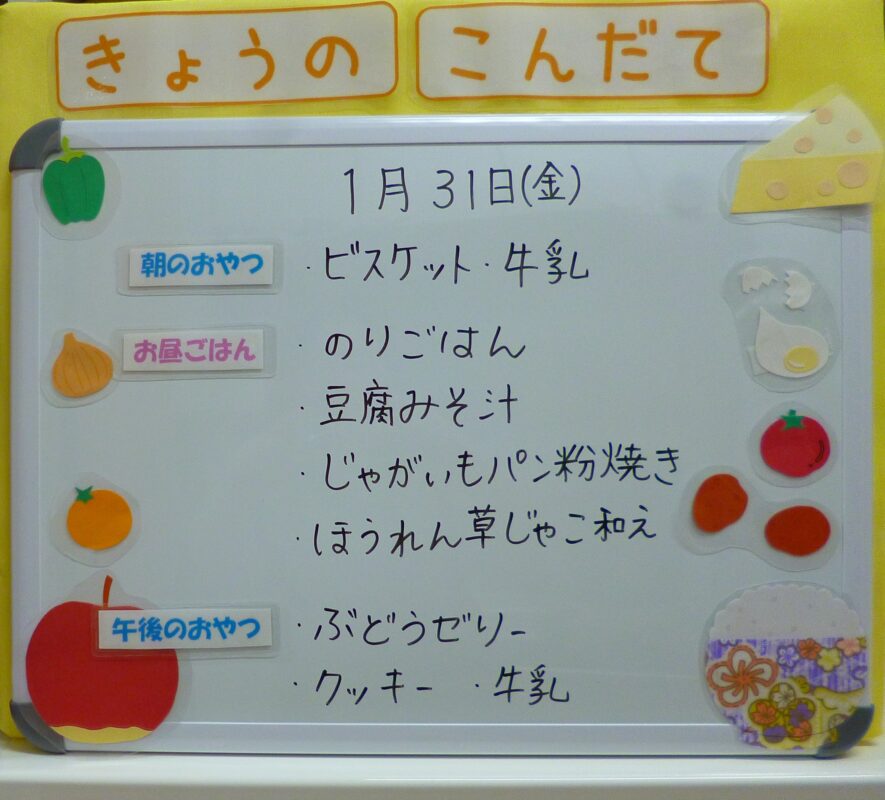 きょうの こんだて
1月31日(金)
朝のおやつ ・ビスケット・牛乳
お昼ごはん ・のりごはん
・豆腐みそ汁
・じゃがいもパン粉焼き
・ほうれん草じゃこ和え
午後のおやつ ・ぶどうゼリー
・クッキー ・牛乳